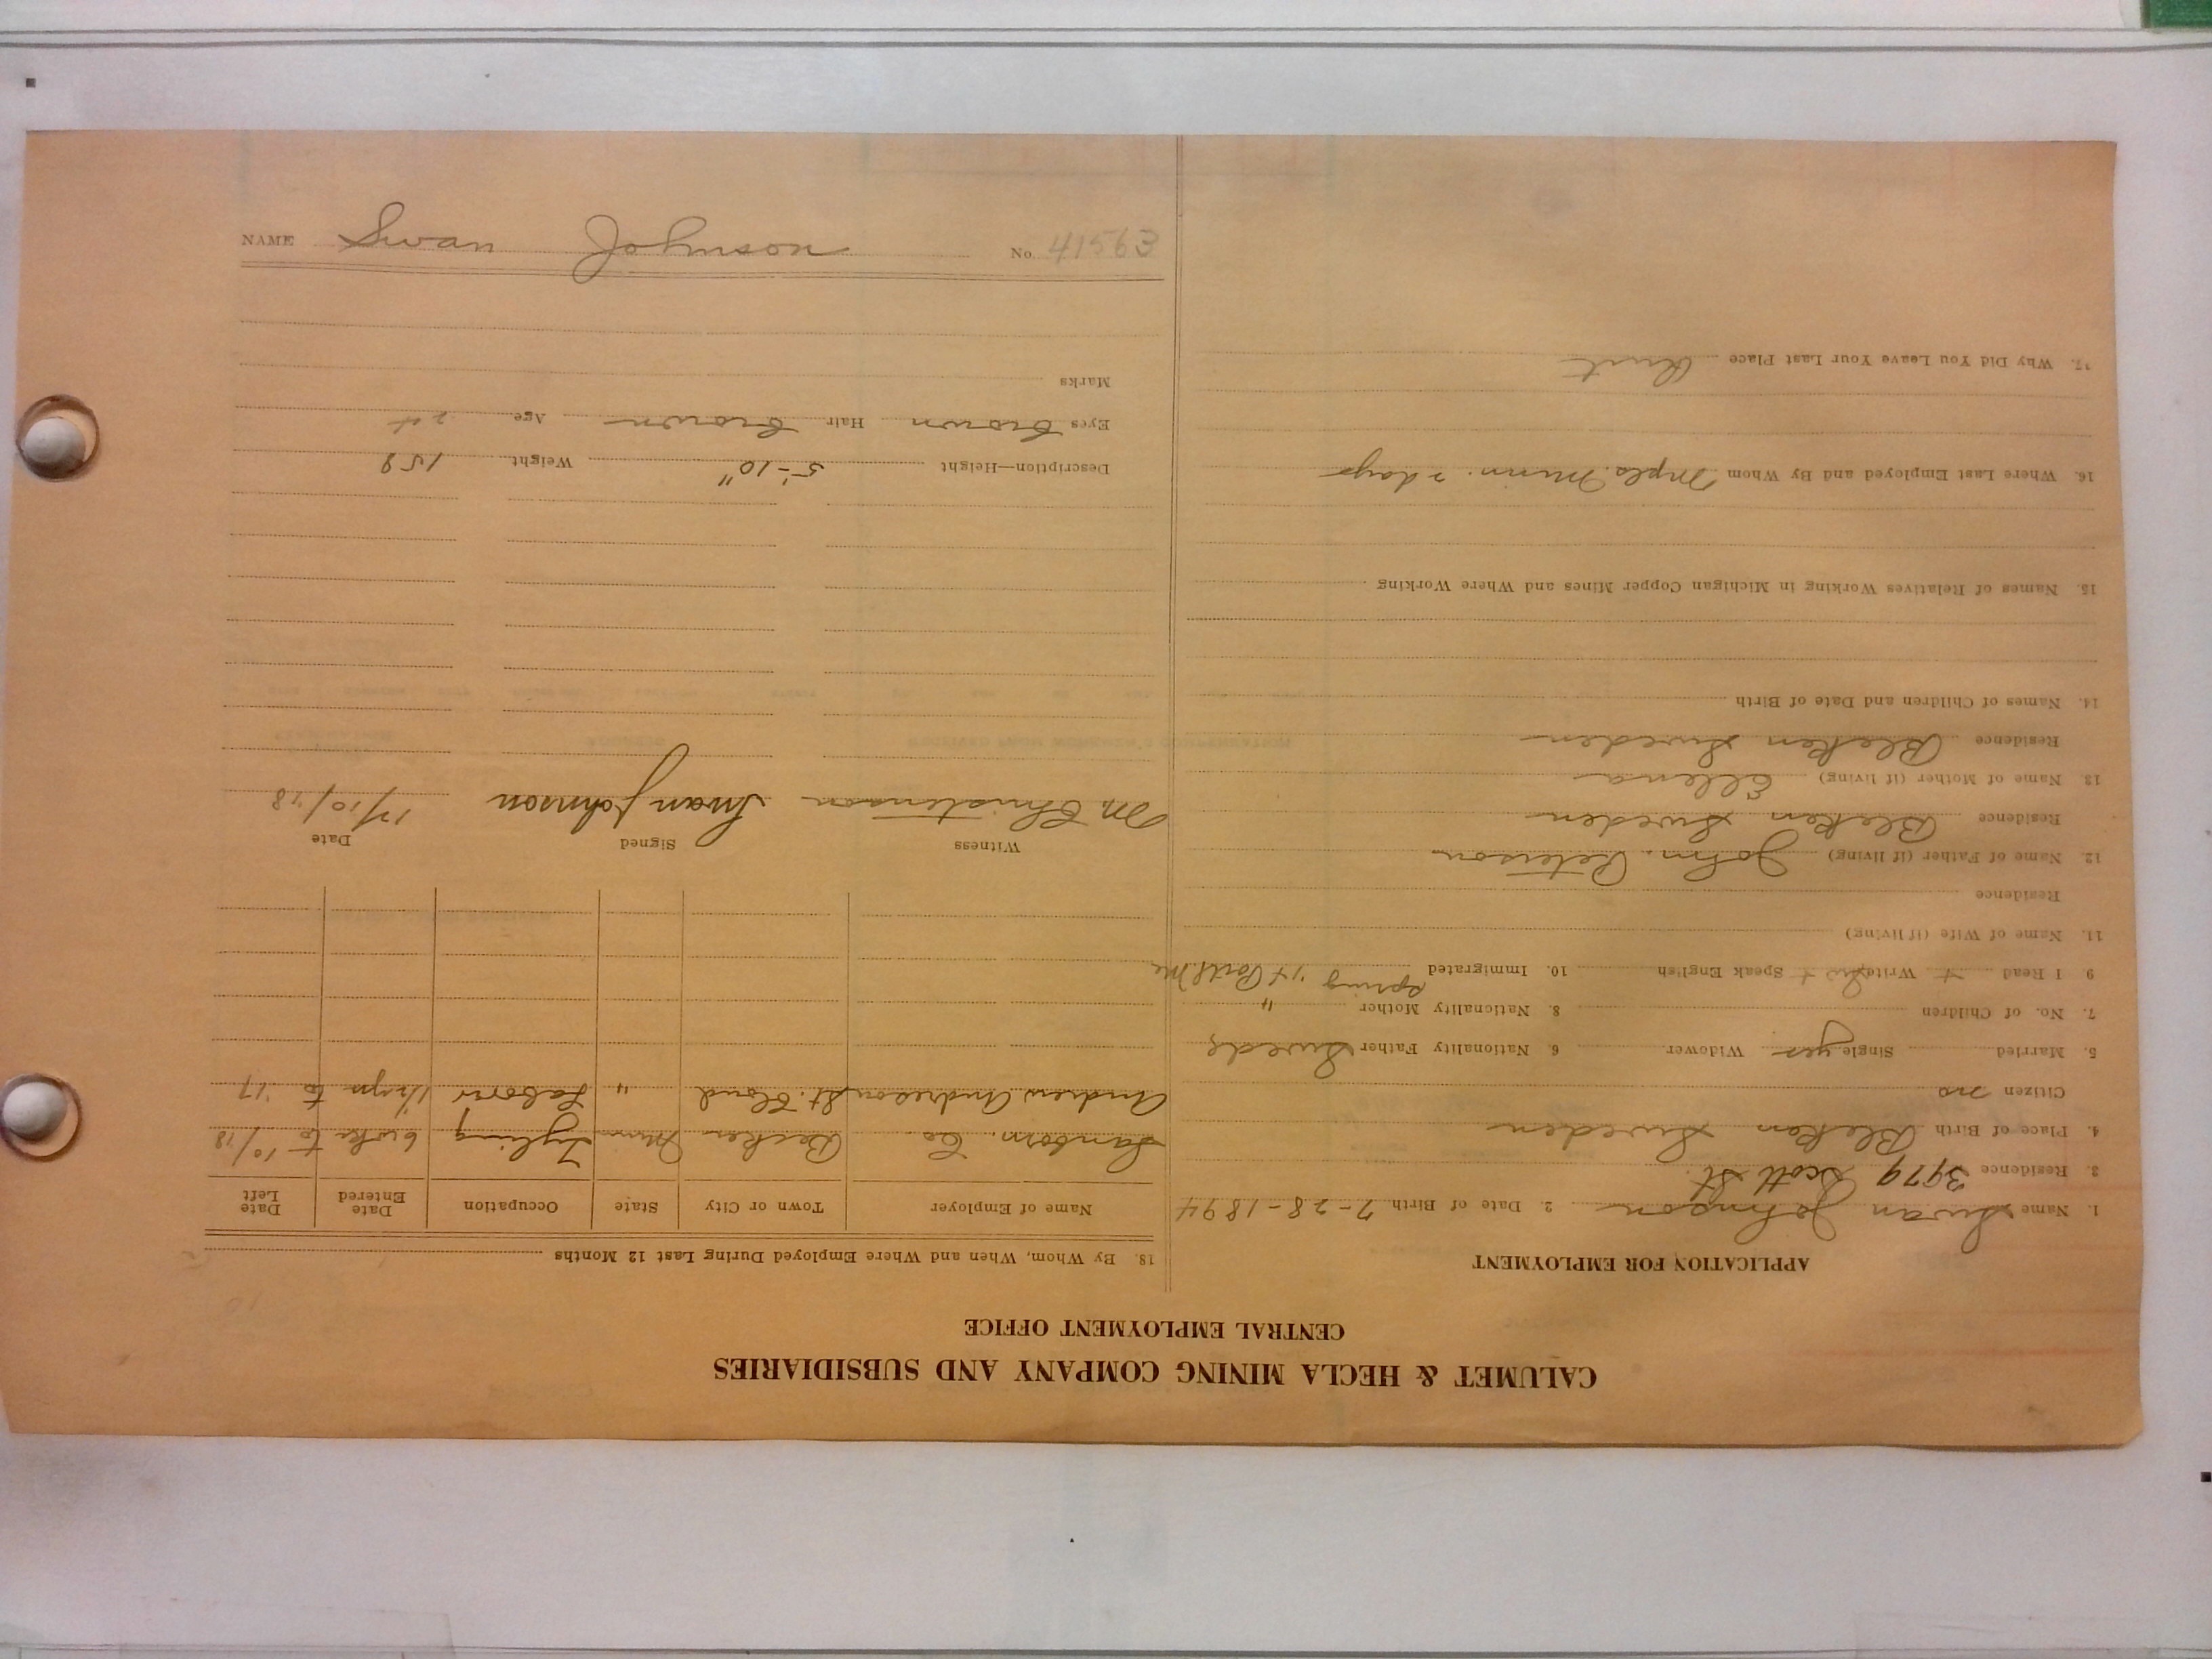 CALUMET & HECLA MINING COMPANY AND SUBSIDIARIES
CENTRAL EMPLOYMENT OFFICE
APPLICATION FOR EMPLOYMENT
1. Name Swan Johnson 2. Date of Birth 7-28-1894
3. Residence 3979 Scott St.
4. Place of Birth Bleken Sweden
Citizen no
5. Married Single yes Widower 6. Nationality Father Swede
7. No. of Children 8. Nationality Mother "
9 I Read + Write Speak English + 10. Immigrated Spring '14 Portl. Me
11. Name of Wife (if living)
Residence
12. Name of Father (if living) John. Peterson
Residence Bleken Sweden
13 Name of Mother (if living) Ellena
Residence Bleken Sweden
14. Names of Children and Date of Birth
15. Names of Relatives Working in Michigan Copper Mines and Where Working
16. Where Last Employed and By Whom Mpls. Minn. 2 days
17. Why Did You Leave Your Last Place Quit
18. By Whom, When and Where Employed During Last 12 Months
Name of Employer Town or City State Occupation Date Entered Date Left
Sanborn. Co Becker Minn 6 wks to 10/18
Andrew Andreson St. Cloud " Labour 1½ yrs to '17
Witness Signed Date
M Christenson Swan Johnson 12/10/18
Description—Height 5'-10" Weight 158
Eyes Brown Hair Brown Age 24
Marks
NAME Swan Johnson No. 41563